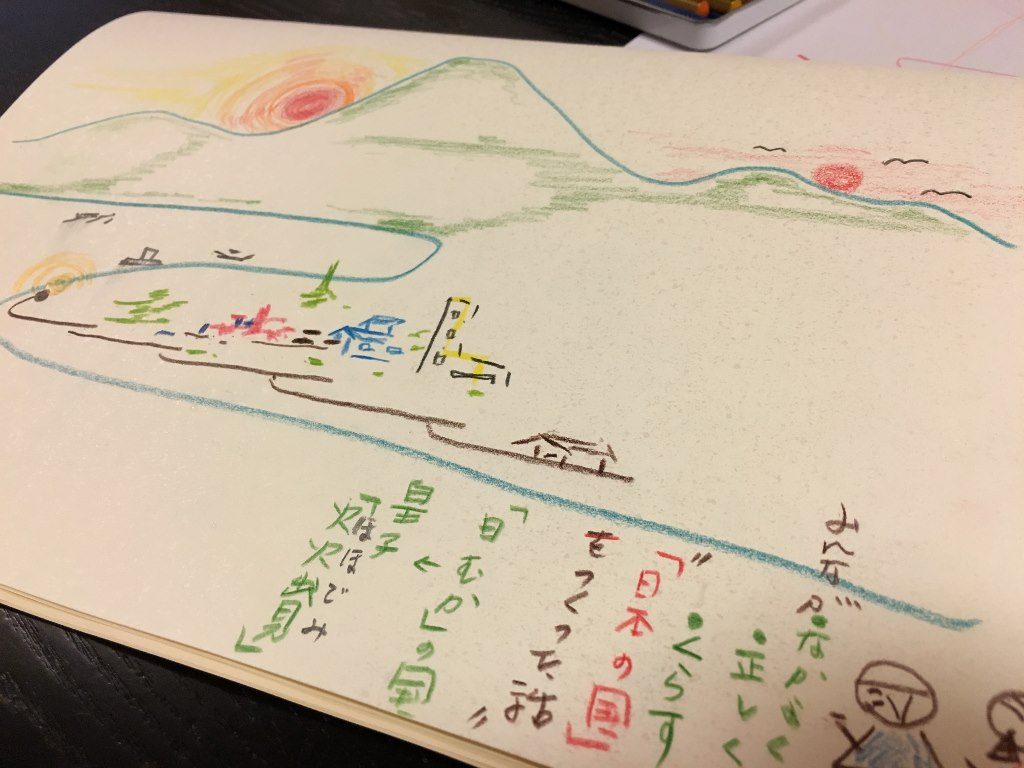 みんなが
・なかよく
・正しく
・くらす
〝「日本の国」
をつくった話〟
「日むか」の国
←
皇子
「火火出見」
ほほでみ